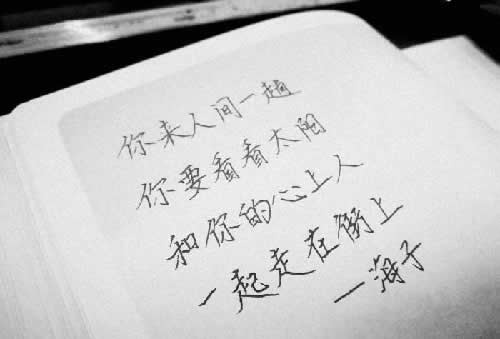 你来人间一趟
你要看看太阳
和你的心上人
一起走在街上
—海子